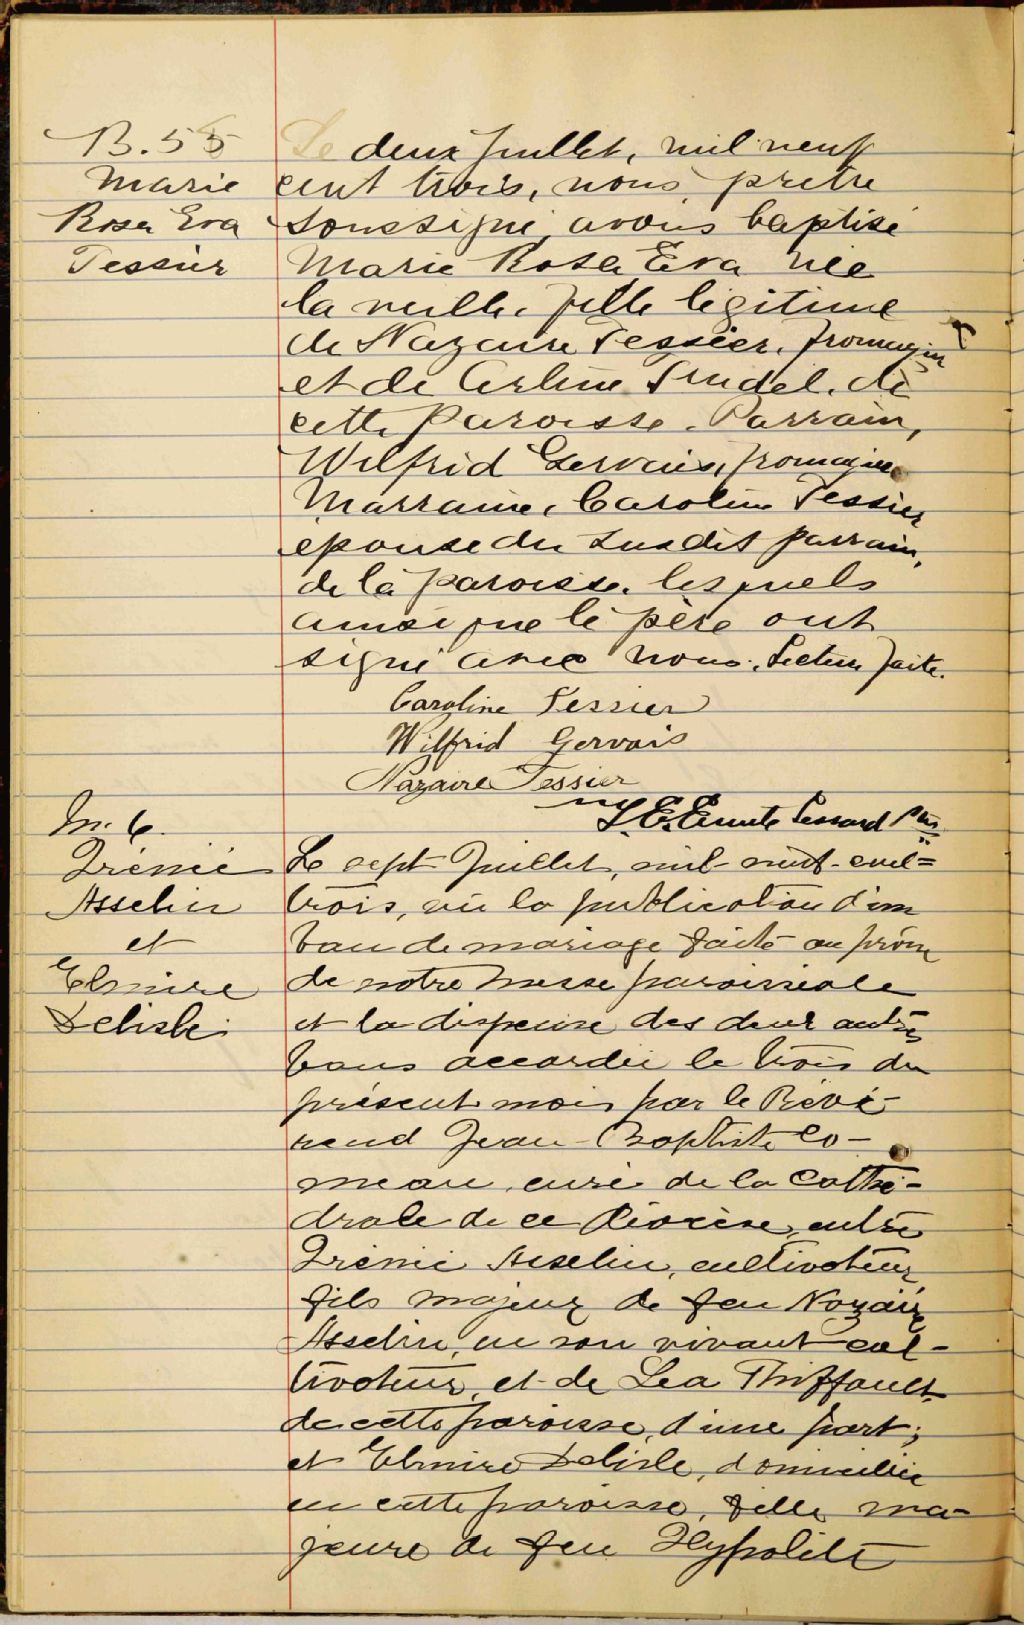 B. 55
Marie
Rosa Eva
Tessier
Le deux Juillet, mil neuf
cent trois, nous prêtre
soussigné avons baptisé
Marie Rosa Eva née
la veille, fille légitime
de Nazaire Tessier, fromager
et de Arline Trudel, de
cette paroisse. Parrain,
Wilfrid Gervais, fromager
Marraine, Caroline Tessier
épouse du susdit parrain,
de la paroisse, lesquels
ainsi que le père ont
signé avec nous. Lecture faite.
Caroline Tessier
Wilfrid Gervais
Nazaire Tessier
Lessard Ptre
M. 6.
Irénée
Asselin
et
Elmire
Delisle
Le sept Juillet, mil-neuf-cent-
trois, vu la publication d'un
ban de mariage faite au prône
de notre messe paroissiale
et la dispense des deux autres
bans accordée le trois du
présent mois par le Révé-
rend Jean-Baptiste Co-
meau, curé de la Cathé-
drale de ce diocèse, entre
Irénée Asselin, cultivateur,
fils majeur de feu Nazaire
Asselin, en son vivant cul-
tivateur, et de Lea Thiffault
de cette paroisse, d'une part;
et Elmire Delisle, domiciliée
en cette paroisse, fille ma-
jeure de feu Hypolite